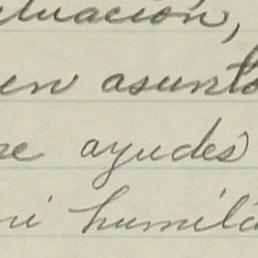 tuación,
en asunto
me ayudes
mi humild